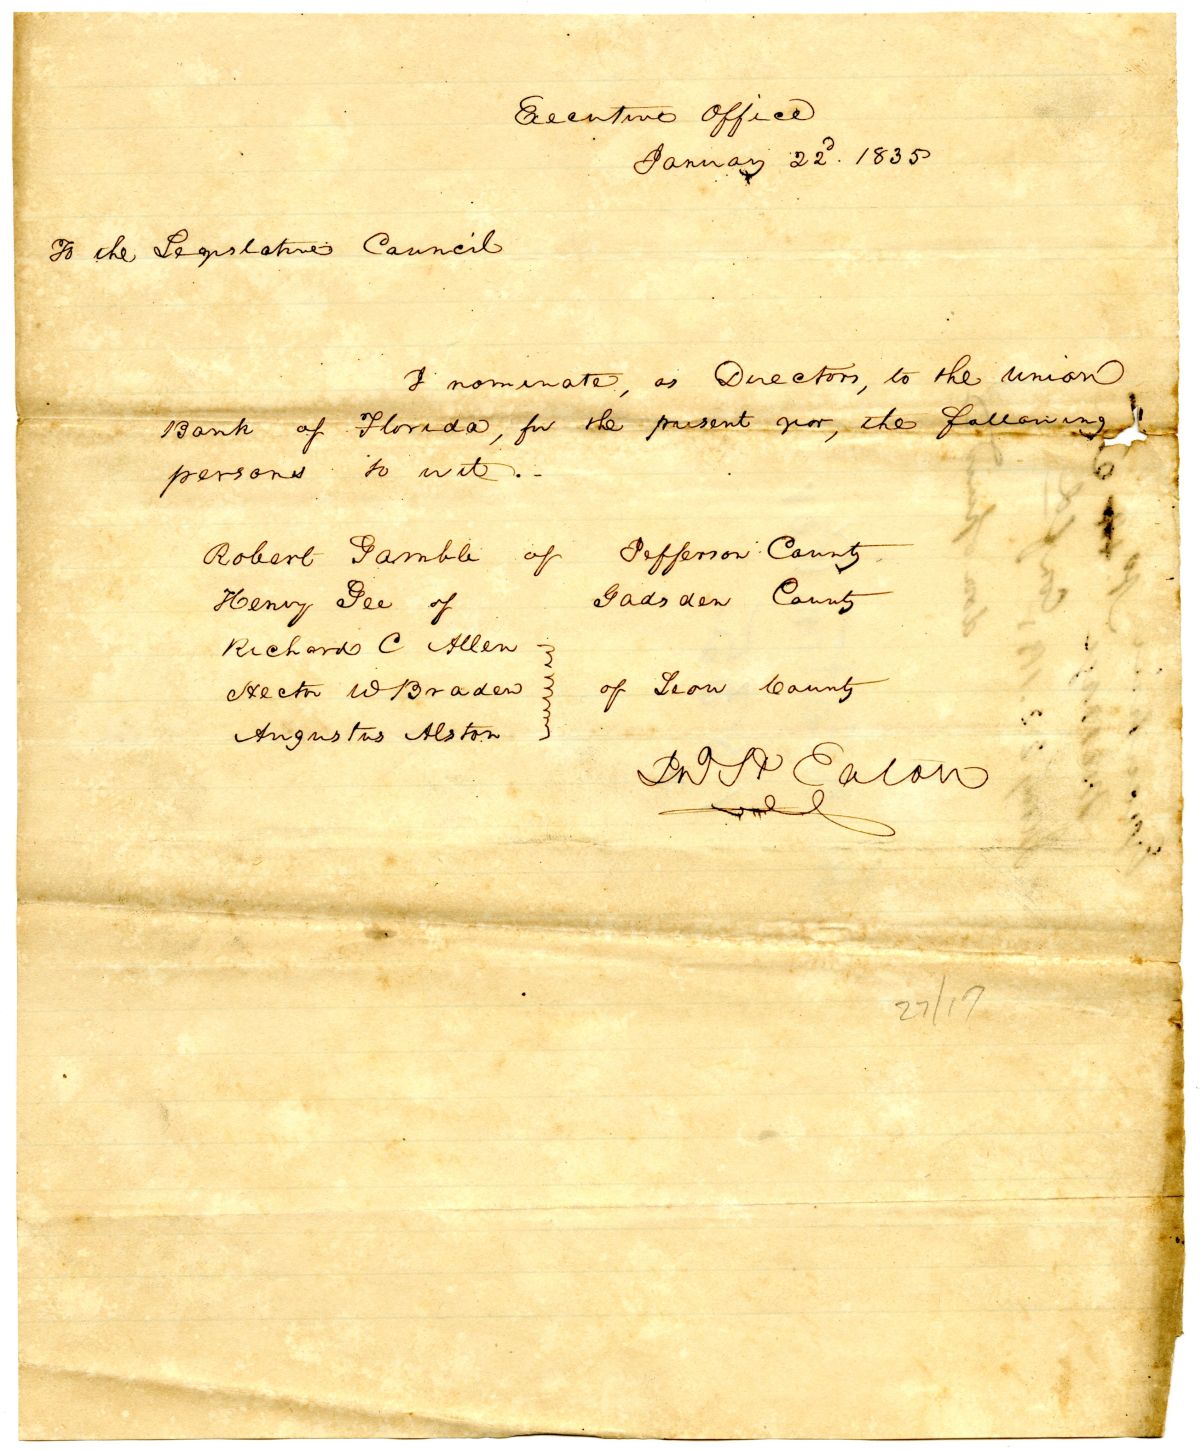 Executive Office
January 22d. 1835
To the Legislative Council
I nominate, as Directors, to the Union
Bank of Florida, for the present year, the following
persons to wit. -
Robert Gamble of Jefferson County
Henry Gee of Gadsden County
Richard C Allen
Hector W Braden of Leon County
Augustus Alston
Jno H Eaton
27/17